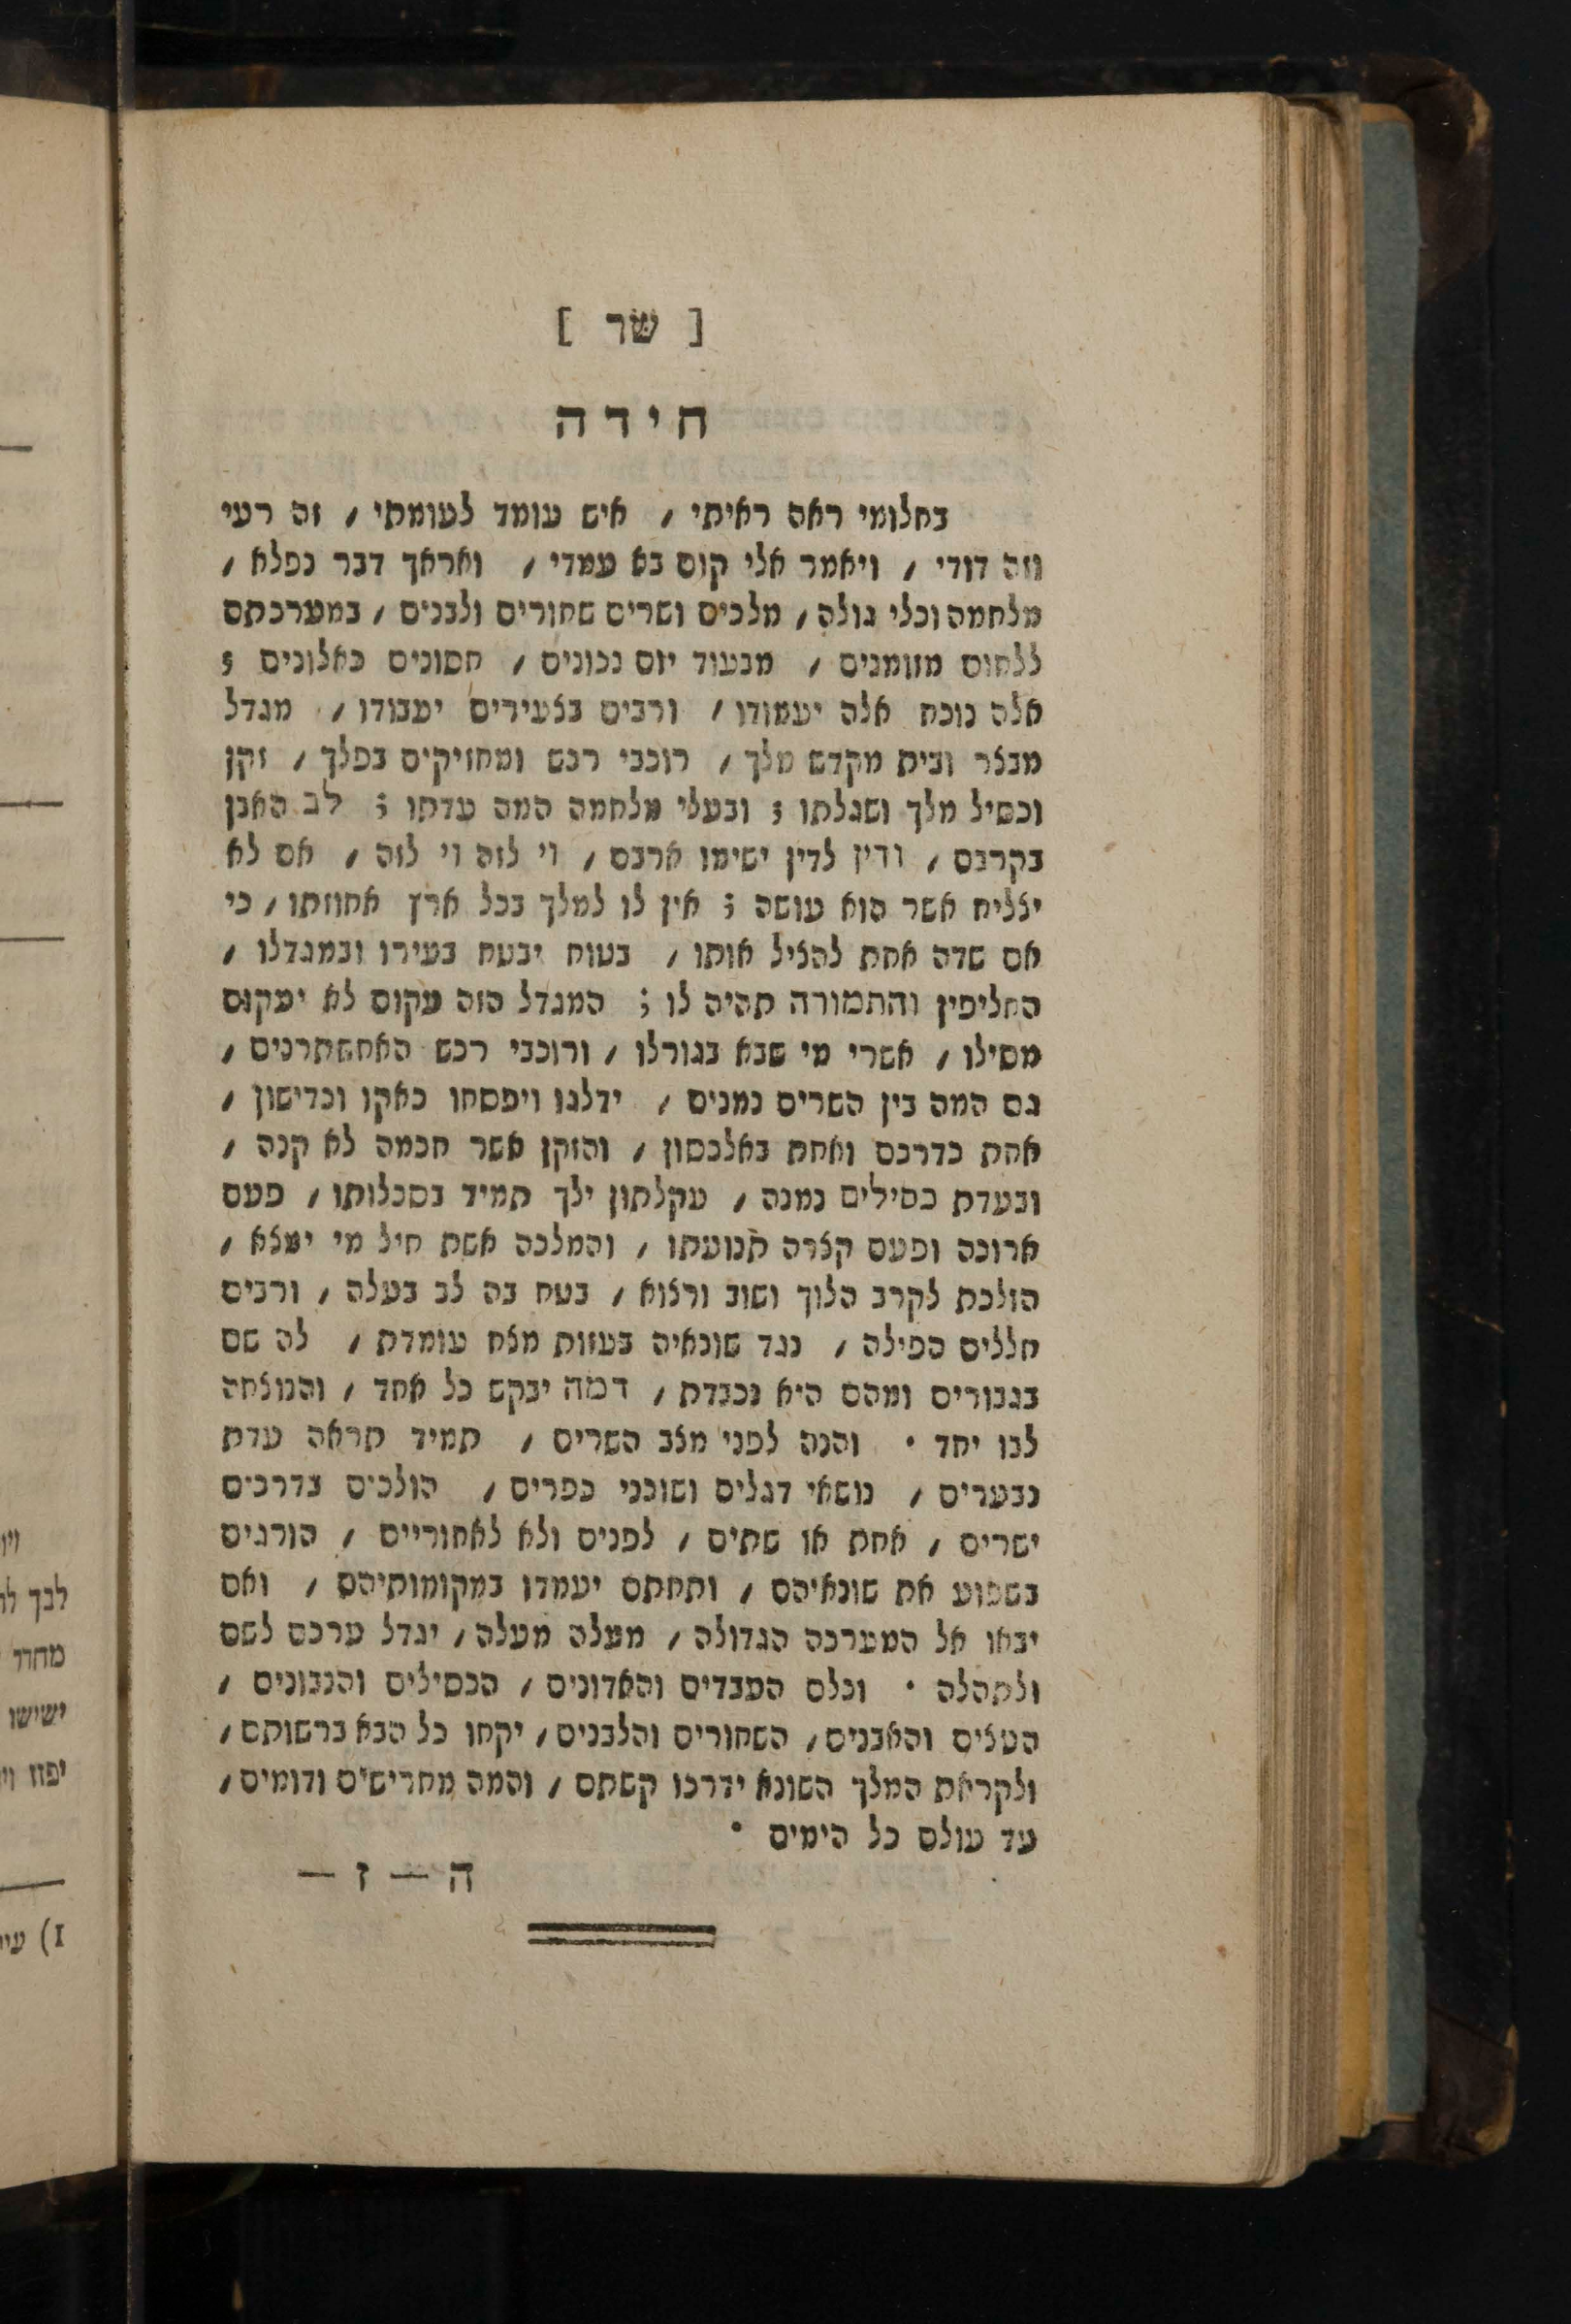 [ שר ]
חידה
בחלומי ראה ראיתי / איש עומד לעומתי / זה רעי
וזה דודי / ויאמר אלי קום בא עמדי / ואראך דבר נפלא /
מלחמה וכלי גולה / מלכים ושרים שחורים ולבנים / במערכתם
ללחום מזומנים / מבעוד יום נכונים / חסונים כאלונים ;
אלה נוכח אלה יעמודו / ורבים בצעירים יעבודו / מגדל
מבצר ובית מקדש מלך / רוכבי רכש ומחזיקים בפלך / זקן
וכסיל מלך ושגלתו ; ובעלי מלחמה המה עדתו ; לב האבן
בקרבם / ודין לדין ישימו ארבם / וי לזה וי לזה / אם לא
יצליח אשר הוא עושה ; אין לו למלך בכל ארץ אחוזתו / כי
אם שדה אחת להציל אותו / בטוח יבטח בעירו ובמגדלו /
החליפין והתמורה תהיה לו ; המגדל הזה עקום לא יעקום
מסילו / אשרי מי שבא בגורלו / ורוכבי רכש האחשתרנים /
גם המה בין השרים נמנים / ידלגו ויפסחו כאקו וכדישון /
אחת כדרכם ואחת באלכסון / והזקן אשר חכמה לא קנה /
ובעדת כסילים נמנה / עקלתון ילך תמיד בסכלותו / פעם
ארוכה ופעם קצרה תנועתו / והמלכה אשת חיל מי ימצא /
הולכת לקרב הלוך ושוב ורצוא / בטח בה לב בעלה / ורבים
חללים הפילה / נגד שונאיה בעזות מצח עומדת / לה שם
בגבורים ומהם היא נכבדת / דמה יבקש כל אחד / והנוצחה
לבו יחד • והנה לפני מצב השרים / תמיד תראה עדת
נבערים / נושאי דגלים ושוכני כפרים / הולכים בדרכים
ישרים / אחת או שתים / לפנים ולא לאחוריים / הורגים
בשפוע את שונאיהם / ותחתם יעמדו במקומותיהם / ואם
יבאו אל המערכה הגדולה / מעלה מעלה / יגדל ערכם לשם
ולתהלה • וכלם העבדים והאדונים / הכסילים והנבונים /
העצים והאבנים / השחורים והלבנים / יקחו כל הבא ברשותם /
ולקראת המלך השונא ידרכו קשתם / והמה מחרישים ודומים /
עד עולם כל הימים •
ה — ז —
לבך
מחדר
ישישו
יפוז
1)